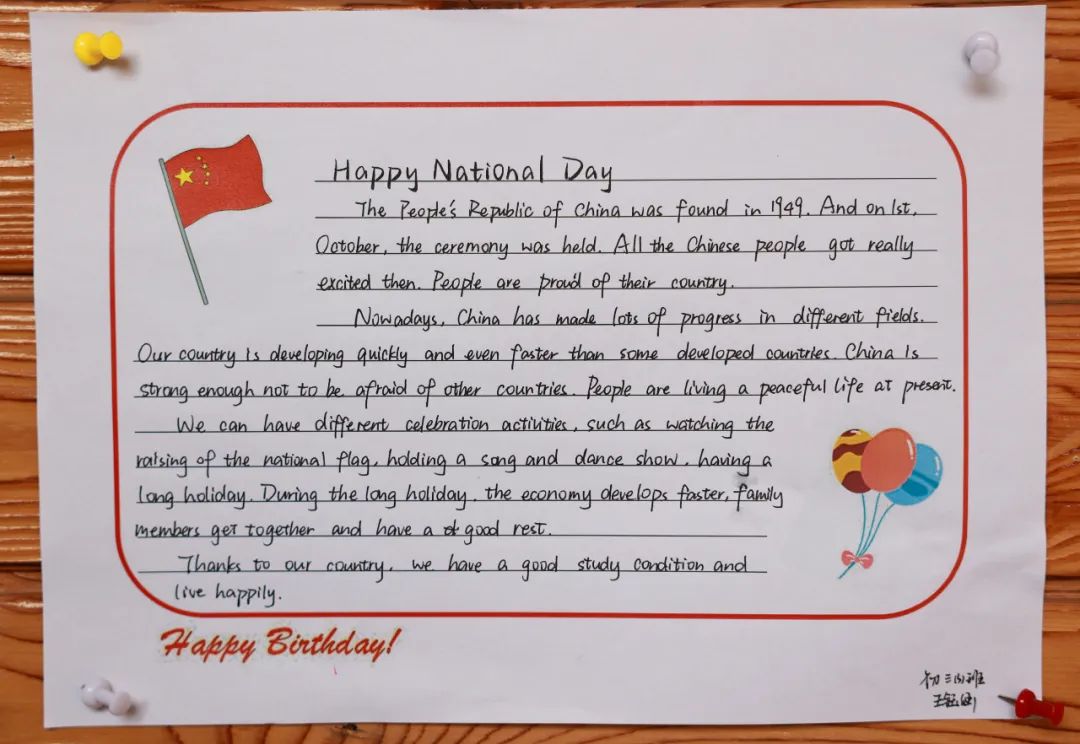 Happy National Day
The People's Republic of China was found in 1949. And on 1st,
October, the ceremony was held. All the Chinese people got really
excited then. People are proud of their country.
Nowadays, China has made lots of progress in different fields.
Our country is developing quickly and even faster than some developed countries. China is
strong enough not to be afraid of other countries. People are living a peaceful life at present.
We can have different celebration activities, such as watching the
raising of the national flag, holding a song and dance show, having a
long holiday. During the long holiday, the economy develops faster, family
members get together and have a good rest.
Thanks to our country, we have a good study condition and
live happily.
Happy Birthday!
初三
班
王